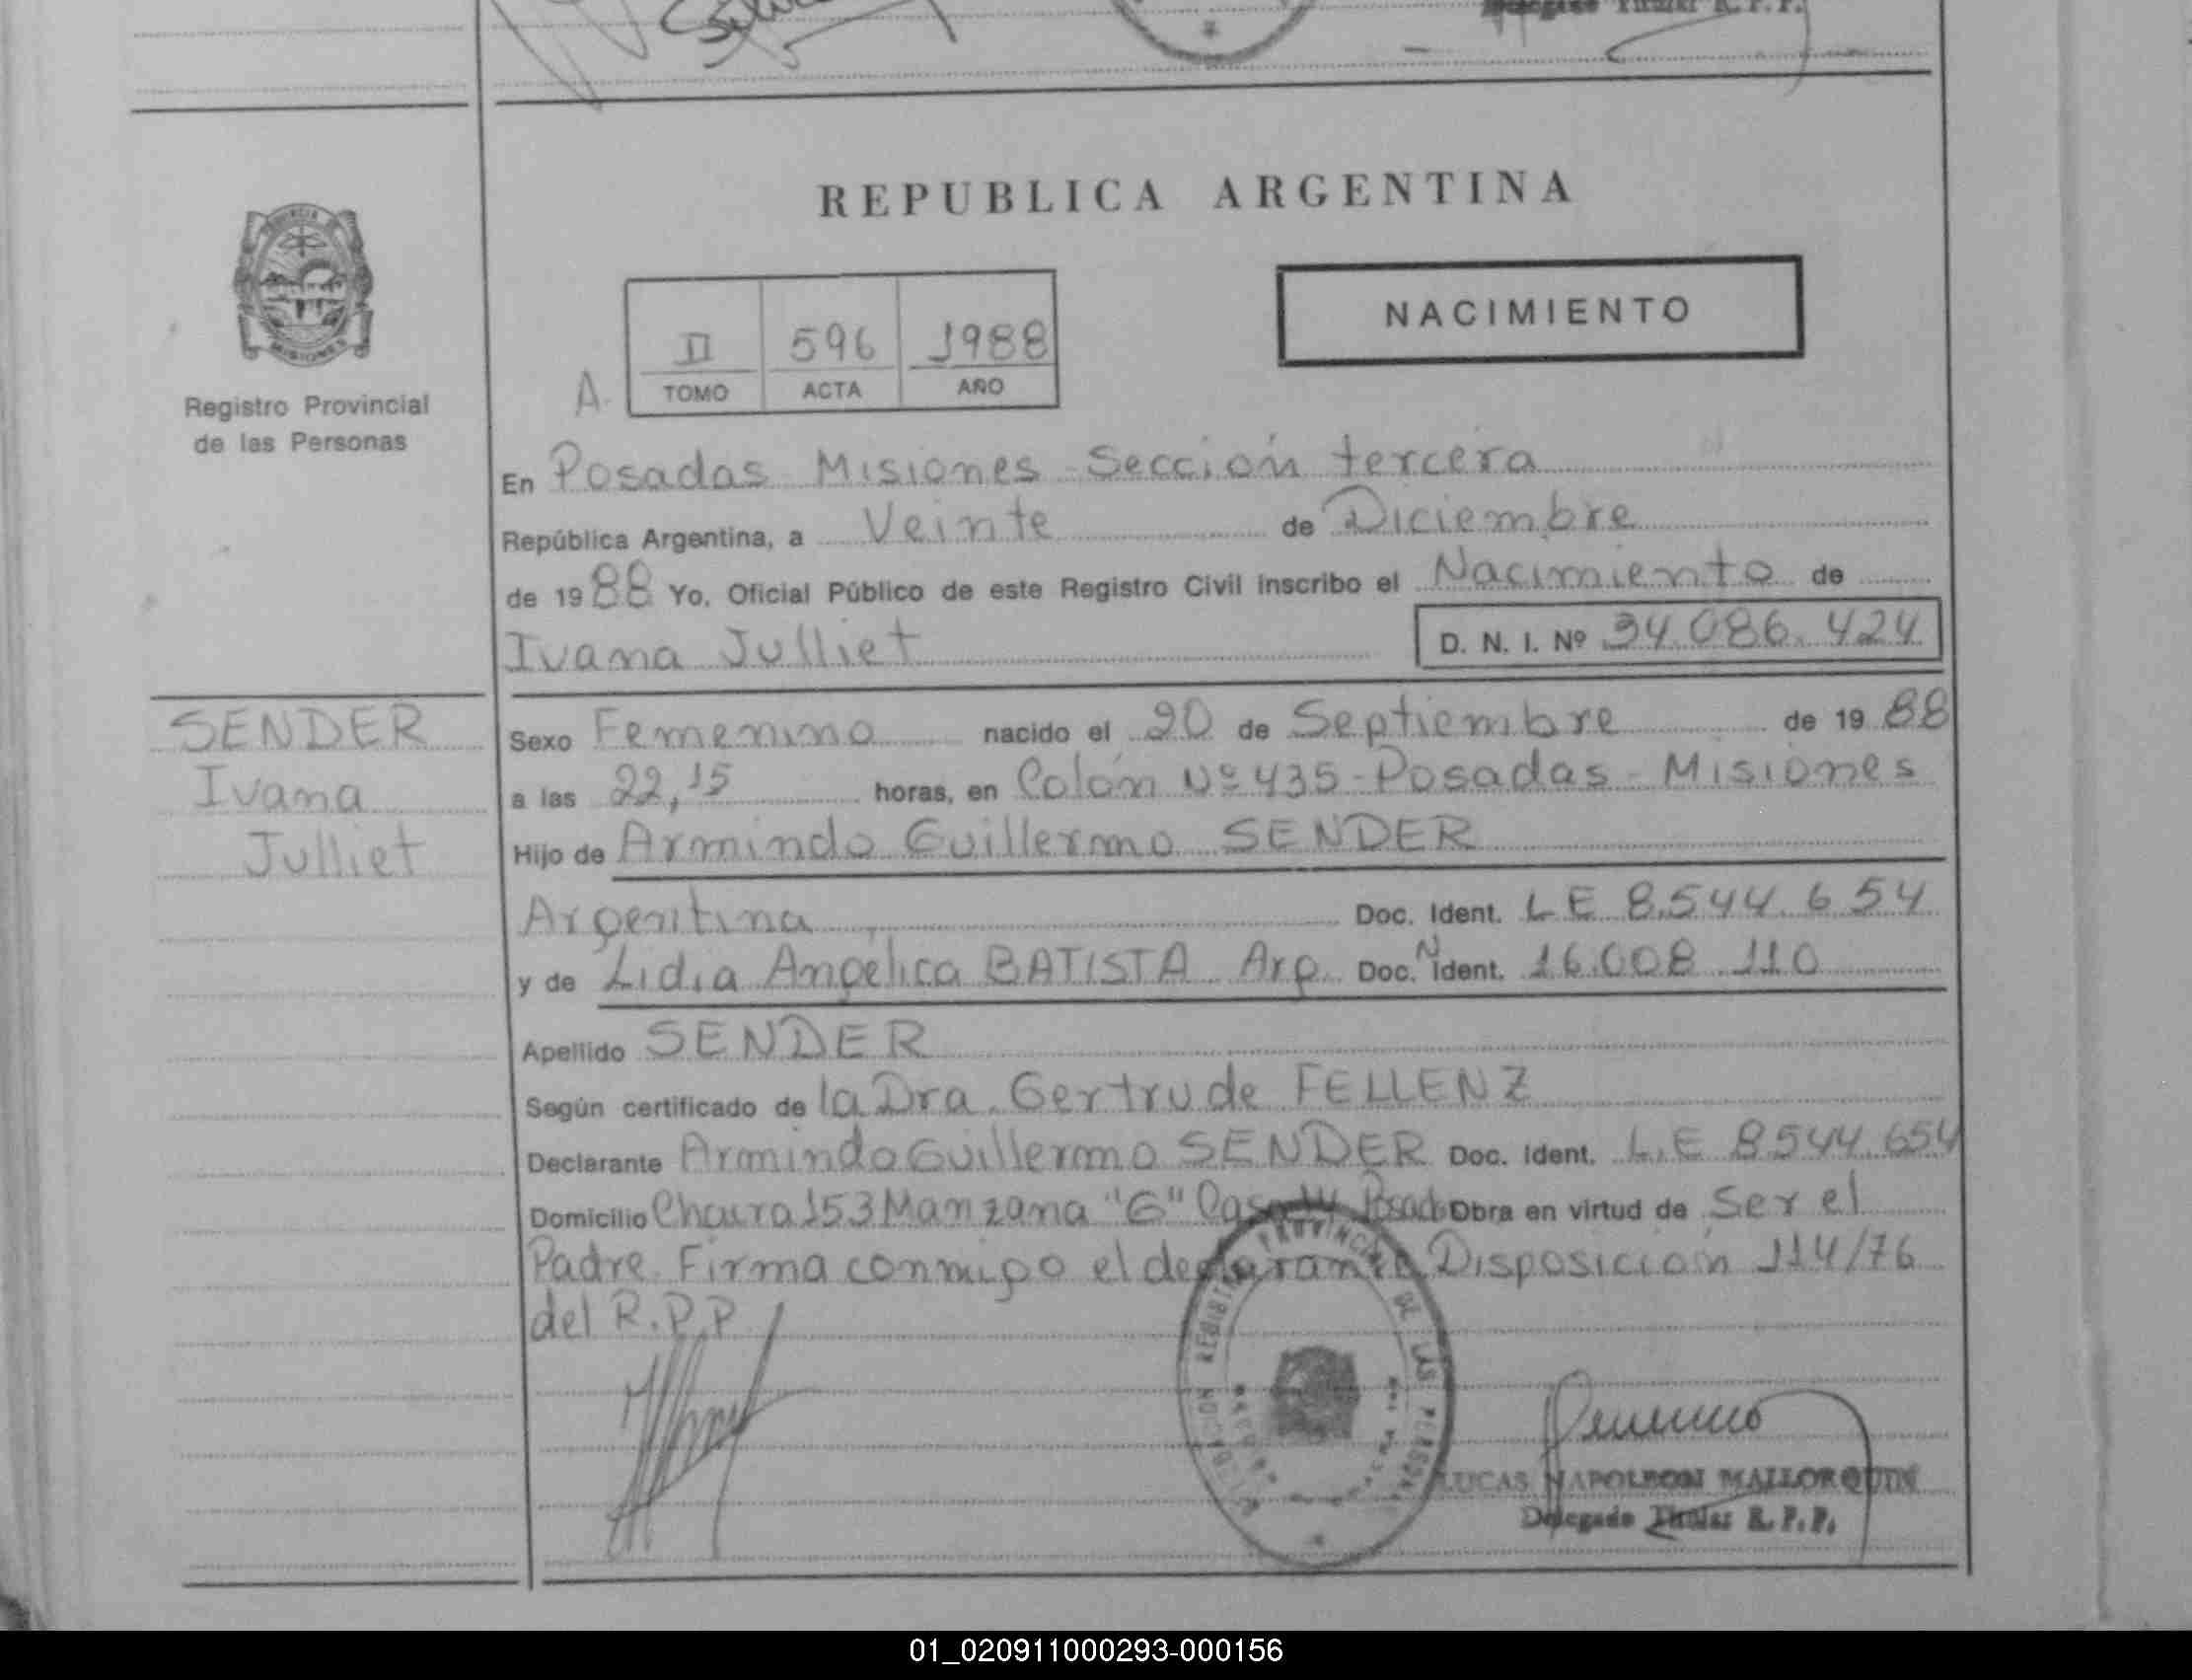 Delegado Titular R.P.P.
REPUBLICA ARGENTINA
NACIMIENTO
II 596 1988
A TOMO ACTA AÑO
Registro Provincial
de las Personas
MISIONES
En Posadas Misiones Sección tercera
República Argentina, a Veinte de Diciembre
de 1988 Yo, Oficial Público de este Registro Civil inscribo el Nacimiento de
Ivana Julliet D. N. I. Nº 34.086.424
SENDER
Ivana
Julliet
Sexo Femenino nacido el 20 de Septiembre de 1988
a las 22,15 horas, en Colón Nº 435-Posadas-Misiones
Hijo de Armindo Guillermo SENDER
Argentina Doc. Ident. LE 8.544.654
y de Lidia Angelica BATISTA Arg. Doc. N Ident. 16.008.110
Apellido SENDER
Según certificado de la Dra. Gertrude FELLENZ
Declarante Armindo Guillermo SENDER Doc. Ident. L.E 8.544.654
Domicilio Chacra 153 Manzana "G" Casa Obra en virtud de Ser el
Padre. Firma conmigo el declarante. Disposición 114/76
del R.P.P.
PROVINCIAL DE LAS PERSONAS
LUCAS NAPOLEON MALLORQUIN
Delegado Titular R.P.P.
01_020911000293-000156